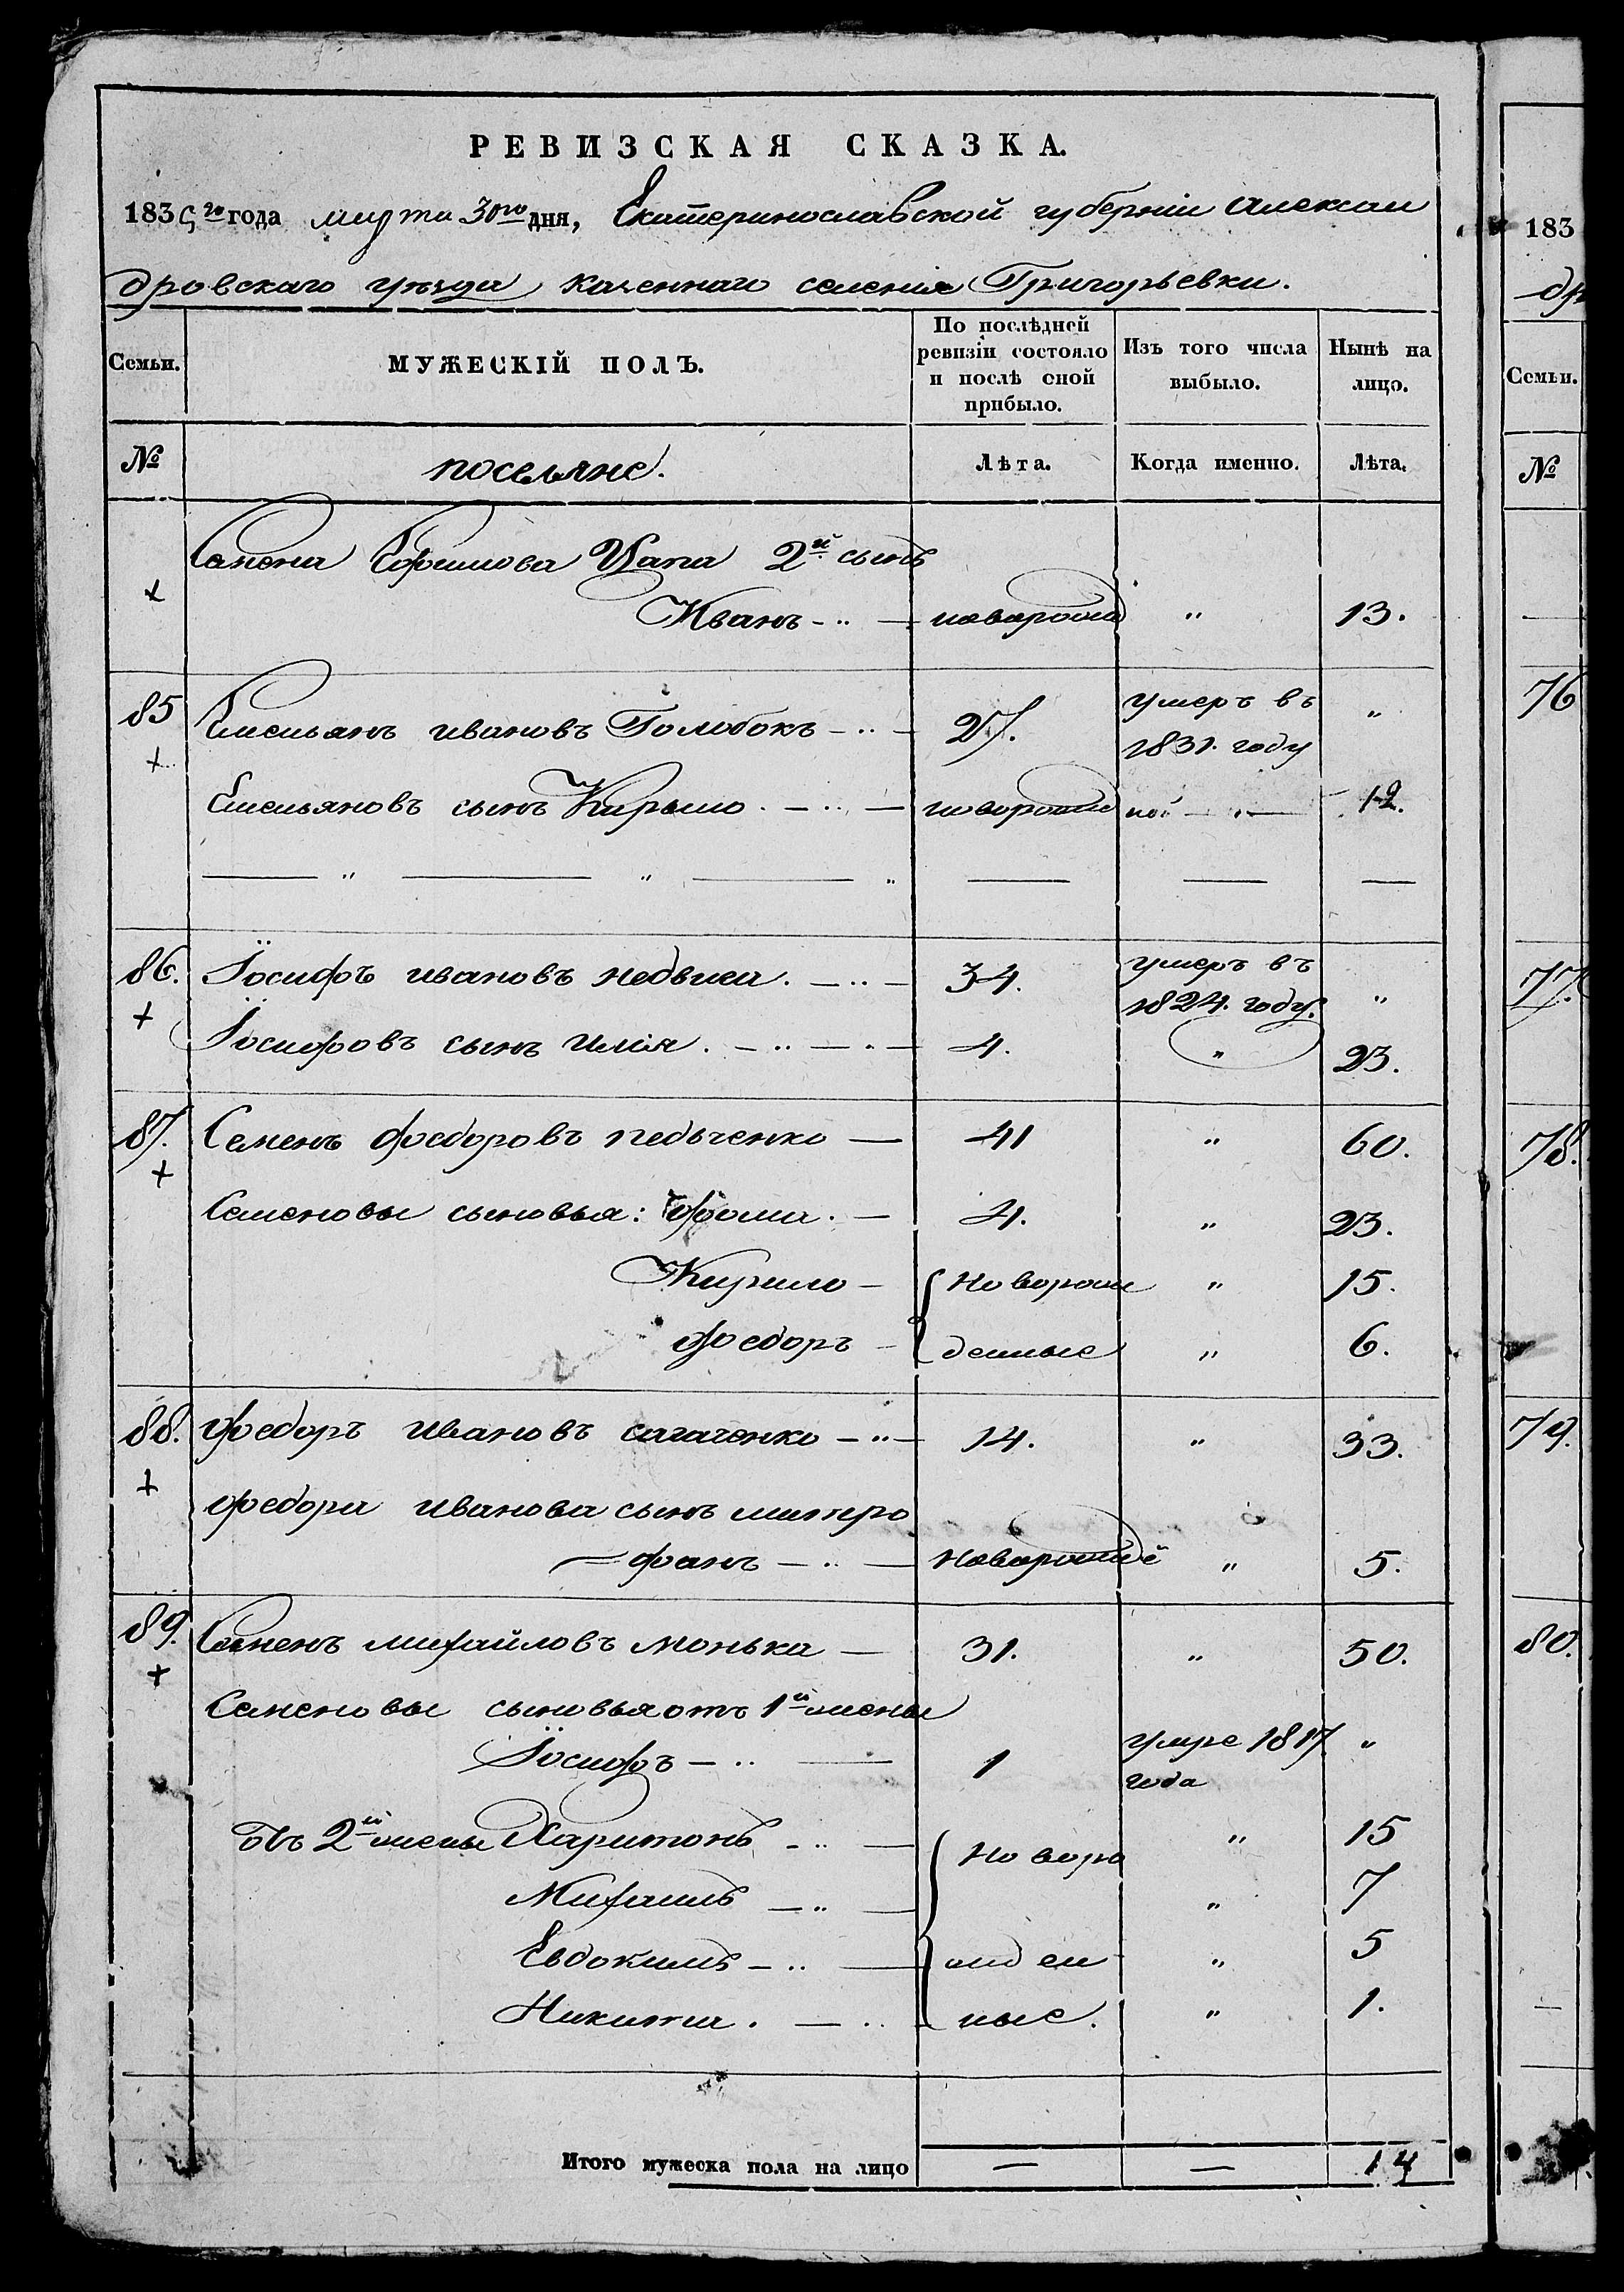 РЕВИЗСКАЯ СКАЗКА.
1835го года марта 30го дня, Екатеринославской губерніи Алексан
дровскаго уѣзда казеннаго селенія Григорьевки.
Семьи. МУЖЕСКІЙ ПОЛЪ. По послѣдней ревизіи состояло и послѣ оной прибыло. Изъ того числа выбыло. Нынѣ на лицо.
№ поселяне. Лѣта. Когда именно. Лѣта.
Семена Ефимова Цапа 2й сынъ
Иванъ новорожд " 13.
85 Емельянъ ивановъ Голобокъ 27. умеръ въ 1831. году "
Емельяновъ сынъ Кирыло новорожде ной 12.
86. Іосифъ ивановъ недвига. 34. умеръ въ 1824. году. "
Іосифовъ сынъ илія. 4. " 23.
87. Семенъ федоровъ педьченко 41 " 60.
Семеновы сыновья: фома. 4. " 23.
Кирило {Новорож " 15.
федоръ { денные " 6.
88. федоръ ивановъ сагаченко 14. " 33.
федора иванова сынъ митро
фанъ Новорожде " 5.
89. Семенъ михайловъ монька 31. " 50.
Семеновы сыновья отъ 1й жены
Іосифъ 1 умре 1817 года "
отъ 2й жены Харитонъ { Новоро " 15
Михаилъ " 7
Евдокимъ { жден " 5
Никита. ные. " 1.
Итого мужеска пола на лицо — — 14
183
др
Семьи.
№
76
77.
78.
79.
80.